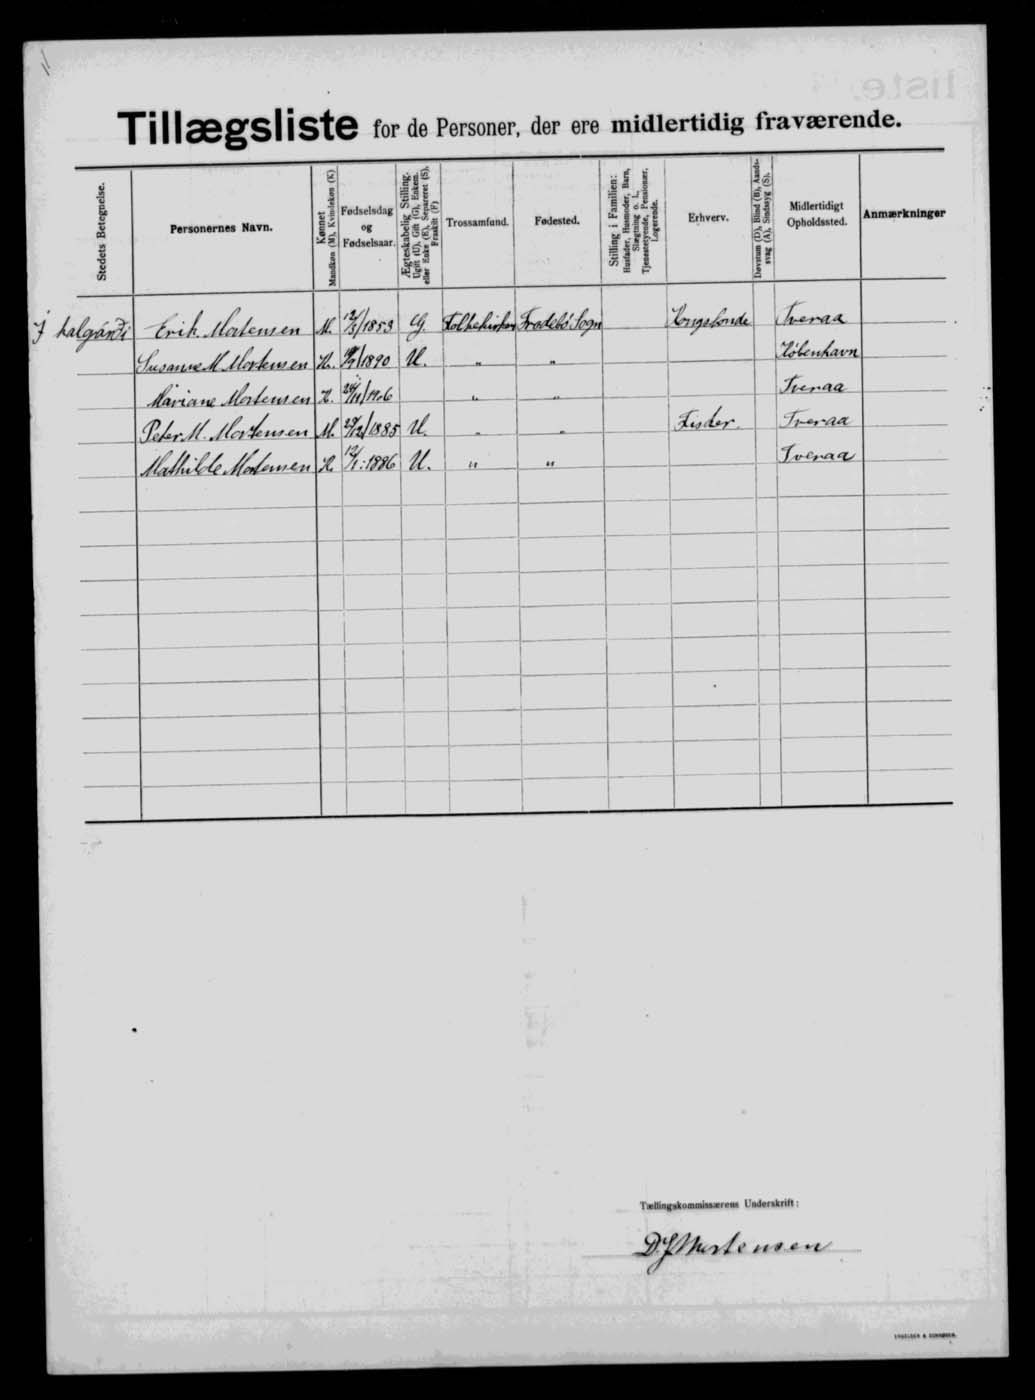 Tillægsliste for de Personer, der ere midlertidig fraværende.
Stedets Betegnelse.
Personernes Navn.
Kønnet
Mandkøn (M), Kvindekøn (K)
Fødselsdag
og
Fødselsaar.
Ægteskabelig Stilling.
Ugift (U), Gift (G), Enkem.
eller Enke (E), Separeret (S),
Fraskilt (F)
Trossamfund.
Fødested.
Stilling i Familien:
Husfader, Husmoder, Barn,
Slægtning o. l.,
Tjenestetyende, Pensionær,
Logerende.
Erhverv.
Døvstum (D), Blind (B), Aands-
svag (A), Sindssyg (S).
Midlertidigt
Opholdssted.
Anmærkninger
Erik Mortensen M. 12/3/1853 G. Folkekirken Frodebö Sogn Kongsbonde Tveraa
Susanne M. Mortensen K. /1890 U. „ „ København
Mariane Mortensen K. 24/11/1906 „ „ Tveraa
Peter M. Mortensen M. 29/12/1885 U. „ „ Fisker. Tveraa
Mathilde Mortensen K. 12/1. 1886 U. „ „ Tveraa
Tællingskommissærens Underskrift:
D. J. Mortensen